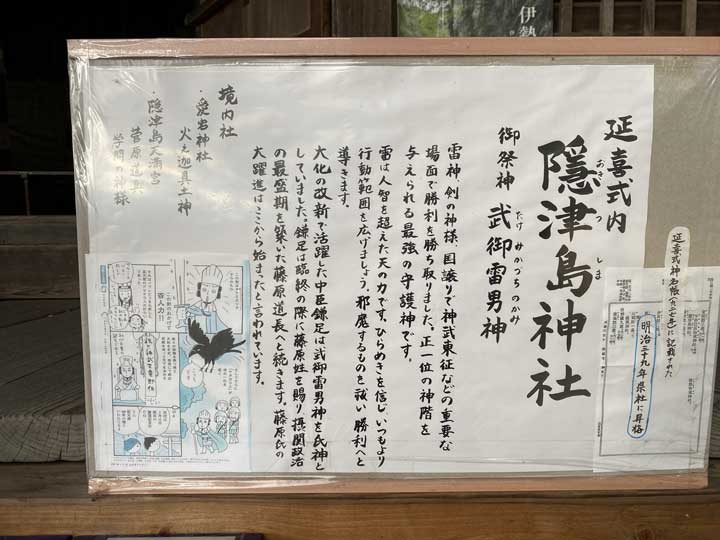 伊勢
延喜式内
隠津島神社
おき つ しま
御祭神 武御雷男神
たけ みかづちのかみ
雷神、剣の神様、国譲りで神武東征などの重要な
場面で勝利を勝ち取りました。正一位の神階を
与えられる最強の守護神です。
雷は人智を超えた天の力です。ひらめきを信じ、いつもより
行動範囲を広げましょう。邪魔するものを祓い勝利へと
導きます。
大化の改新で活躍した中臣鎌足は武御雷男神を氏神と
していました。鎌足は臨終の際に藤原姓を賜り、摂関政治
の最盛期を築いた藤原道長へと続きます。藤原氏の
大躍進はここから始まったと言われています。
境内社
・愛宕神社
火之迦具土神
・隠津島天満宮
菅原道真
学問の神様
延喜式神名帳(九二七年)に記載された
明治三十九年県社に昇格
百人力!!